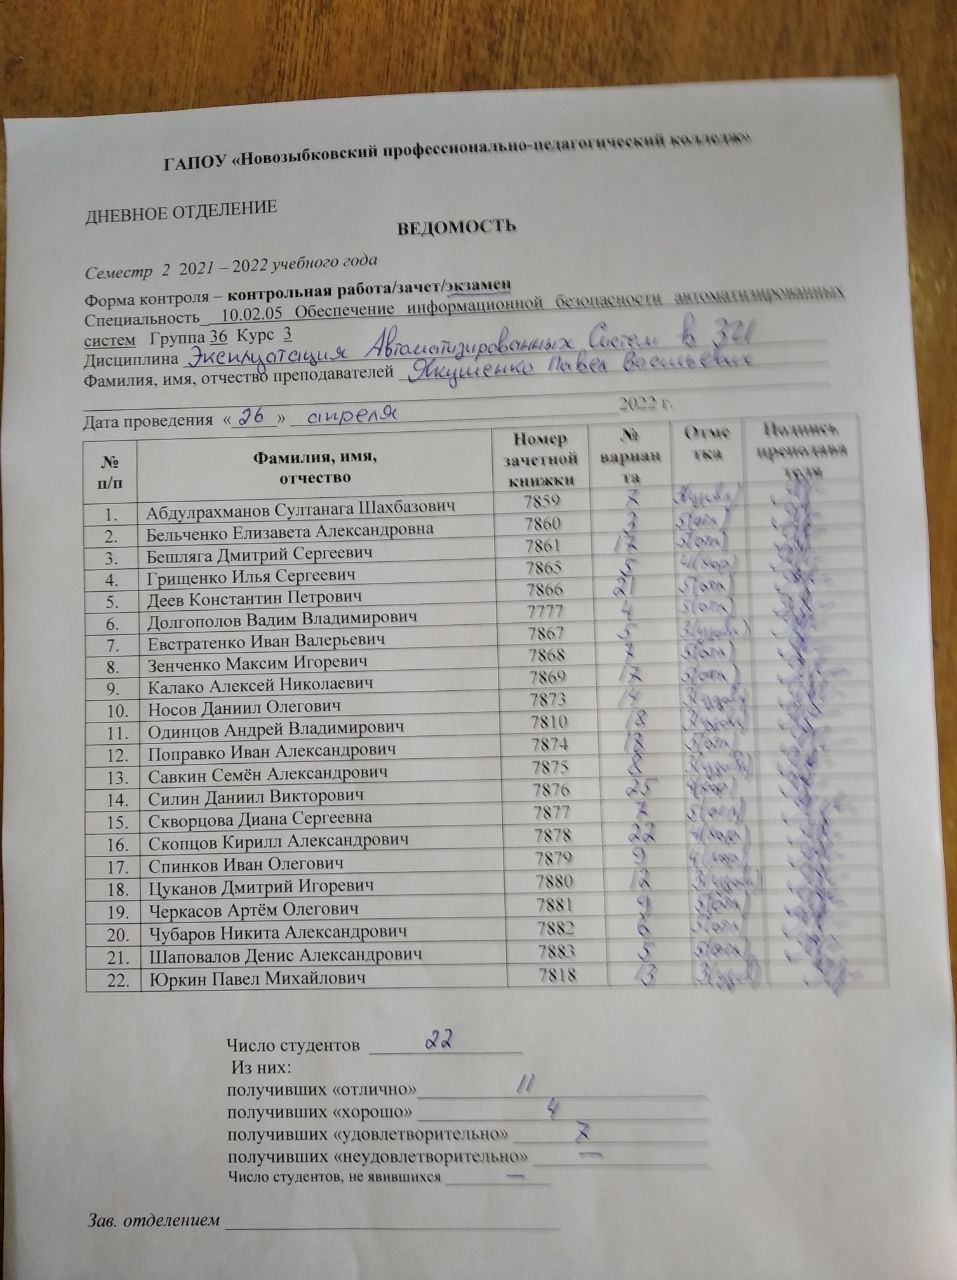 ГАПОУ «Новозыбковский профессионально-педагогический колледж»
ДНЕВНОЕ ОТДЕЛЕНИЕ
ВЕДОМОСТЬ
Семестр 2 2021 – 2022 учебного года
Форма контроля – контрольная работа/зачет/экзамен
Специальность 10.02.05 Обеспечение информационной безопасности автоматизированных
систем Группа 36 Курс 3
Дисциплина Эксплуатация Автоматизированных Систем в
Фамилия, имя, отчество преподавателей Якушенко Павел Васильевич
Дата проведения «26» апреля 2022 г.
№ п/п Фамилия, имя, отчество Номер зачетной книжки № варианта Отметка Подпись преподавателя
1. Абдулрахманов Султанага Шахбазович 7859 7 3(удовл)
2. Бельченко Елизавета Александровна 7860 3 5(отл)
3. Бешляга Дмитрий Сергеевич 7861 17 5(отл)
4. Грищенко Илья Сергеевич 7865 5 4(хор)
5. Деев Константин Петрович 7866 21 5(отл)
6. Долгополов Вадим Владимирович 7777 4 5(отл)
7. Евстратенко Иван Валерьевич 7867 5 3(удовл)
8. Зенченко Максим Игоревич 7868 7 5(отл)
9. Калако Алексей Николаевич 7869 17 5(отл)
10. Носов Даниил Олегович 7873 14 3(удовл)
11. Одинцов Андрей Владимирович 7810 18 3(удовл)
12. Поправко Иван Александрович 7874 5(отл)
13. Савкин Семён Александрович 7875 8 3(удовл)
14. Силин Даниил Викторович 7876 25 4(хор)
15. Скворцова Диана Сергеевна 7877 7 5(отл)
16. Скопцов Кирилл Александрович 7878 22 4(хор)
17. Спинков Иван Олегович 7879 9 4(хор)
18. Цуканов Дмитрий Игоревич 7880 12 3(удовл)
19. Черкасов Артём Олегович 7881 9 5(отл)
20. Чубаров Никита Александрович 7882 6 5(отл)
21. Шаповалов Денис Александрович 7883 5 5(отл)
22. Юркин Павел Михайлович 7818 13 3(удовл)
Число студентов 22
Из них:
получивших «отлично» 11
получивших «хорошо» 4
получивших «удовлетворительно» 7
получивших «неудовлетворительно» —
Число студентов, не явившихся —
Зав. отделением